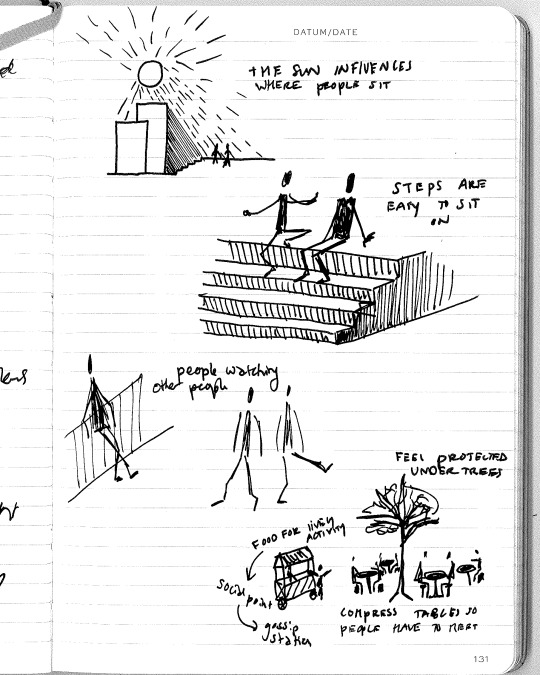 DATUM/DATE
THE SUN INFLUENCES
WHERE PEOPLE SIT
STEPS ARE
EASY TO SIT
ON
people watching
other people
FEEL PROTECTED
UNDER TREES
FOOD FOR lively
ACTIVITY
Social point
gossip
station
COMPRESS TABLES SO
PEOPLE HAVE TO MEET
131